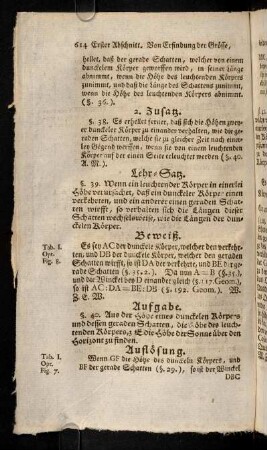 614 Erster Abschnitt. Von Erfindung der Gröſſe,
hellet, daß der gerade Schatten, welcher von einem
dunckelem Körper geworffen wird, in ſeiner Länge
abnimmt, wenn die Höhe des leuchtenden Körpers
zunimmt, und daß die Länge des Schattens zunimmt,
wenn die Höhe des leuchtenden Körpers abnimmt
(§. 36.).
2. Zuſatz.
§. 38. Es erhellet ferner, daß ſich die Höhen zwey-
er dunckeler Körper zu einander verhalten, wie die ge-
raden Schatten, welche ſie zu gleicher Zeit nach einer-
ley Gegend werffen, wenn ſie von einem leuchtenden
Körper auf der einen Seite erleuchtet werden (§. 40.
A. M.).
Lehr-Satz.
§. 39. Wenn ein leuchtender Körper in einerley
Höhe verurſachet, daß ein dunckeler Körper einen
verkehrten, und ein anderer einen geraden Schatten
wirfft, ſo verhalten ſich die Längen dieſer
Schatten wechſelsweiſe, wie die Längen der dunck-
elen Körper.
Beweiß.
Tab. I.
Opt.
Fig. 8.
Es ſey AC der dunckele Körper, welcher den verkehr-
ten, und DB der dunckele Körper, welcher den geraden
Schatten wirfft, ſo iſt DA der verkehrte, und BE der ge-
rade Schatten (§. 35. 2.). Da nun A = B (§. 35.),
und die Winckel bey D einander gleich (§. 117. Geom.),
ſo iſt AC : DA = BE : DB (§. 192. Geom.). W.
Z. E. W.
Aufgabe.
§. 40. Aus der Höhe eines dunckelen Körpers
und deſſen geraden Schatten, die Höhe des leuch-
tenden Körpers, z. E die Höhe der Sonne über den
Horizont zu finden.
Auflöſung.
Tab. I.
Opt.
Fig. 7.
Wenn GF die Höhe des dunckeln Körpers, und
BF der gerade Schatten (§. 29.), ſo iſt der Winckel
DBC